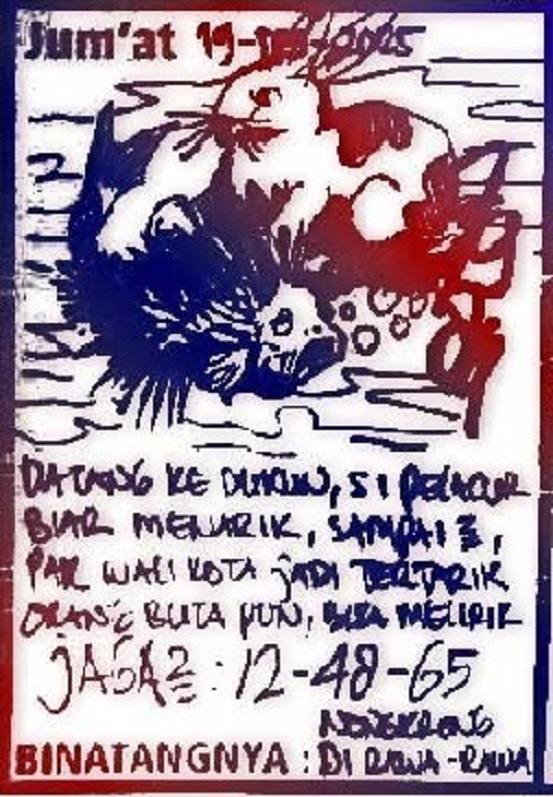 Jum'at 19-  -2025
DATANG KE DUKUN, SI PELACUR
BIAR MENARIK, SAMPAI 2,
PAK WALI KOTA JADI TERTARIK
ORANG BUTA PUN, BISA MELIRIK
JAGA2 : 12-48-65
NONGKRONG
BINATANGNYA : DI RAWA-RAWA